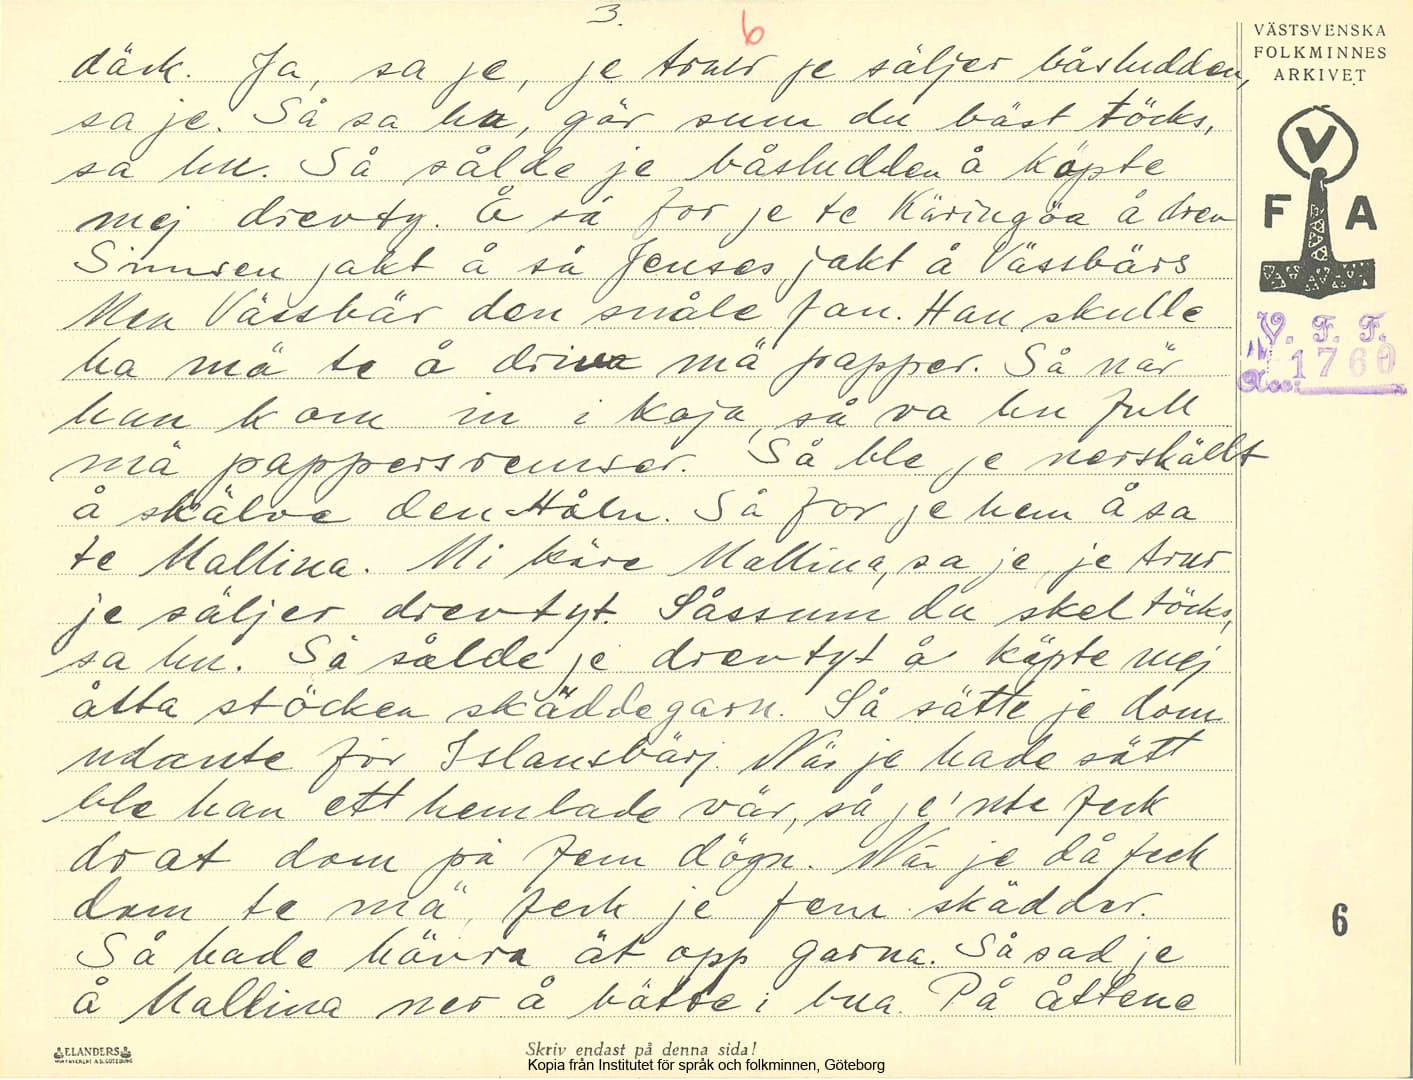 3.
6
däck. Ja, sa je, je trur je säljer båsludden,
sa je. Så sa hu, gör sum du bäst töcks,
sa hu. Så sålde je båsludden å köpte
mej drevty. Å så for je te Käringöa å drev
Simsen jakt å så Jenses jakt å Vässbärs
Men Vässbär den snåle fan. Han skulle
ha mä te å driva mä papper. Så när
han kom in i koja, så va hu full
mä pappersremser. Så ble je nerskällt
å skälve den Håln. Så for je hem å sa
te Mallina. Mi käre Mallina, sa je, je trur
je säljer drevtyt. Såssum du skel töcks,
sa hu. Så sålde je drevtyt å köpte mej
åtta stöcken skäddegarn. Så sätte je dom
udante för Islansbärj. När je hade sätt
ble han ett hemlade vär, så je' nte feck
drat dom på fem dögn. När je då feck
dom te mä, feck je fem skädder.
Så hade hävra ät opp garna. Så sad je
å Mallina ner å bätte i bua. På åttene
VÄSTSVENSKA
FOLKMINNES
ARKIVET
V
F A
V. F. F.
1760
6
ELANDERS
Skriv endast på denna sida!
Kopia från Institutet för språk och folkminnen, Göteborg